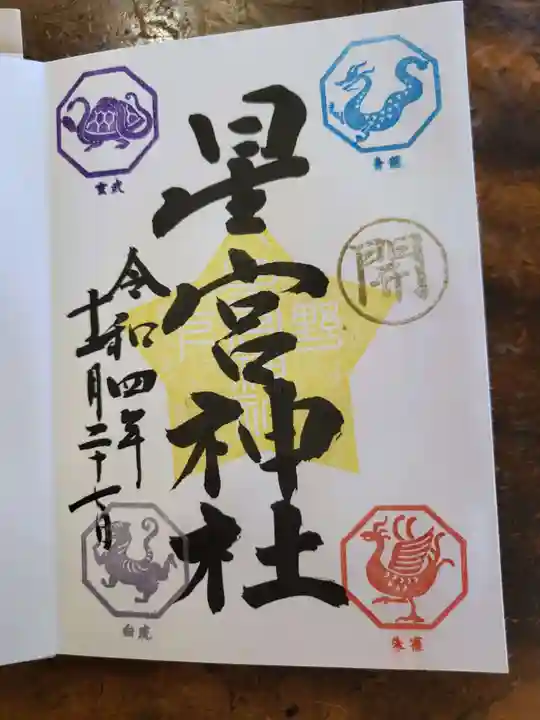 青龍
開
朱雀
星宮神社
玄武
令和四年
十一月二十七日
白虎